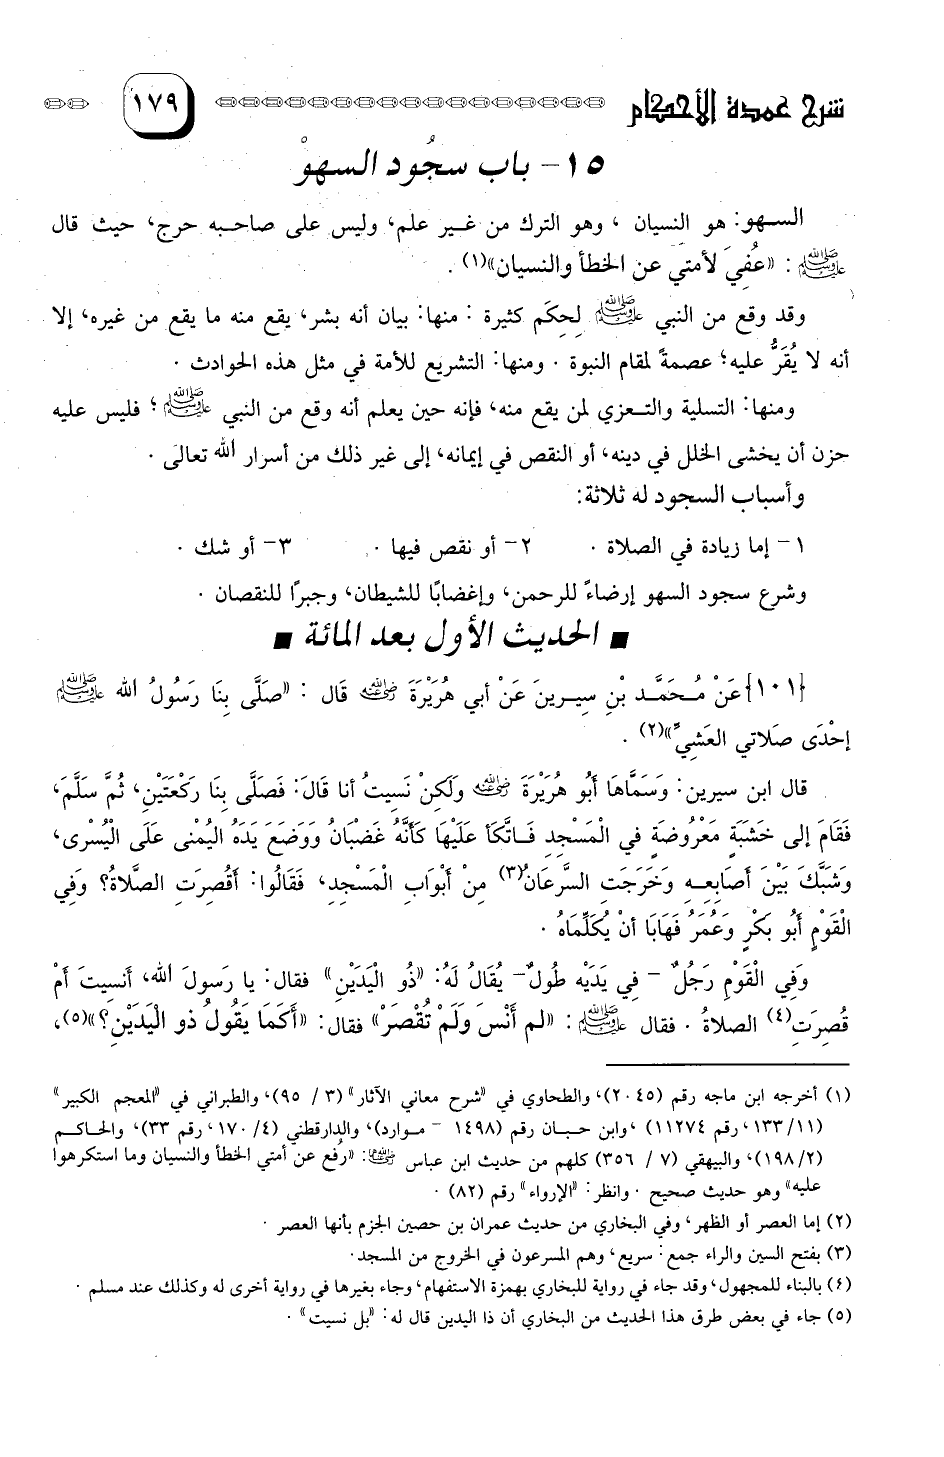 شرح عمدة الأحكام ١٧٩
١٥ - باب سجُود السهوْ
السهو: هو النسيان ، وهو الترك من غير علم، وليس على صاحبه حرج، حيث قال
ﷺ : «عُفِيَ لأمتي عن الخطأ والنسيان»(١) .
وقد وقع من النبي ﷺ لِحِكَم كثيرة : منها: بيان أنه بشر، يقع منه ما يقع من غيره، إلا
أنه لا يُقَرُّ عليه؛ عصمةً لمقام النبوة . ومنها: التشريع للأمة في مثل هذه الحوادث .
ومنها: التسلية والتعزي لمن يقع منه، فإنه حين يعلم أنه وقع من النبي ﷺ ؛ فليس عليه
حزن أن يخشى الخلل في دينه، أو النقص في إيمانه، إلى غير ذلك من أسرار الله تعالى .
وأسباب السجود له ثلاثة:
١- إما زيادة في الصلاة . ٢- أو نقص فيها . ٣- أو شك .
وشرع سجود السهو إرضاءً للرحمن، وإغضابًا للشيطان، وجبرًا للنقصان .
■ الحديث الأول بعد المائة ■
{١٠١} عَنْ مُحَمَّد بْنِ سِيرِينَ عَنْ أبي هُرَيْرَةَ رضي الله عنه قَال : «صَلَّى بِنَا رَسُولُ الله ﷺ
إحْدَى صَلاتي العَشيِّ»(٢) .
قال ابن سيرين: وَسَمَّاها أَبُو هُرَيْرَة رضي الله عنه وَلَكِنْ نَسيتُ أنا قَالَ: فَصَلَّى بِنَا رَكْعَتَيْنِ، ثُمَّ سَلَّمَ،
فَقَامَ إلى خَشَبَةٍ مَعْرُوضَةٍ في الْمَسْجِد فَاتَّكَأ عَلَيْهَا كَأَنَّهُ غَضْبَانُ وَوَضَعَ يَدَهُ اليُمْنى عَلَى الْيُسْرى،
وَشَبَّكَ بَيْنَ أَصَابِعِهِ وَخَرَجَتِ السَّرعَانُ(٣) مِنْ أَبْوَابِ المَسْجِدِ، فَقَالُوا: أَقُصِرَتِ الصَّلاةُ؟ وَفِي
الْقَوْمِ أَبُو بَكْرٍ وَعُمَرُ فَهَابَا أنْ يُكَلِّمَاهُ .
وَفِي الْقَوْمِ رَجُلٌ - في يَدَيْهِ طُولٌ - يُقَالُ لَهُ: «ذُو الْيَدَيْنِ» فقال: يا رَسولَ الله، أَنسيتَ أمْ
قُصِرَتِ(٤) الصلاةُ . فقال ﷺ : «لم أَنْسَ وَلَمْ تُقْصَرْ» فقال: «أَكَمَا يَقُولُ ذو الْيَدَيْنِ؟»(٥)،
(١) أخرجه ابن ماجه رقم (٢٠٤٥)، والطحاوي في «شرح معاني الآثار» (٣ / ٩٥)، والطبراني في «المعجم الكبير»
(١١/ ١٣٣، رقم ١١٢٧٤) ،وابن حبان رقم (١٤٩٨ - موارد)، والدارقطني (٤/ ١٧٠، رقم ٣٣)، والحاكم
(٢/ ١٩٨)، والبيهقي (٧ / ٣٥٦) كلهم من حديث ابن عباس رضي الله عنهما: «رفع عن أمتي الخطأ والنسيان وما استكرهوا
عليه» وهو حديث صحيح . وانظر: «الإرواء» رقم (٨٢) .
(٢) إما العصر أو الظهر، وفي البخاري من حديث عمران بن حصين الجزم بأنها العصر .
(٣) بفتح السين والراء جمع: سريع، وهم المسرعون في الخروج من المسجد.
(٤) بالبناء للمجهول، وقد جاء في رواية للبخاري بهمزة الاستفهام، وجاء بغيرها في رواية أخرى له وكذلك عند مسلم .
(٥) جاء في بعض طرق هذا الحديث من البخاري أن ذا اليدين قال له: «بل نسيت» .